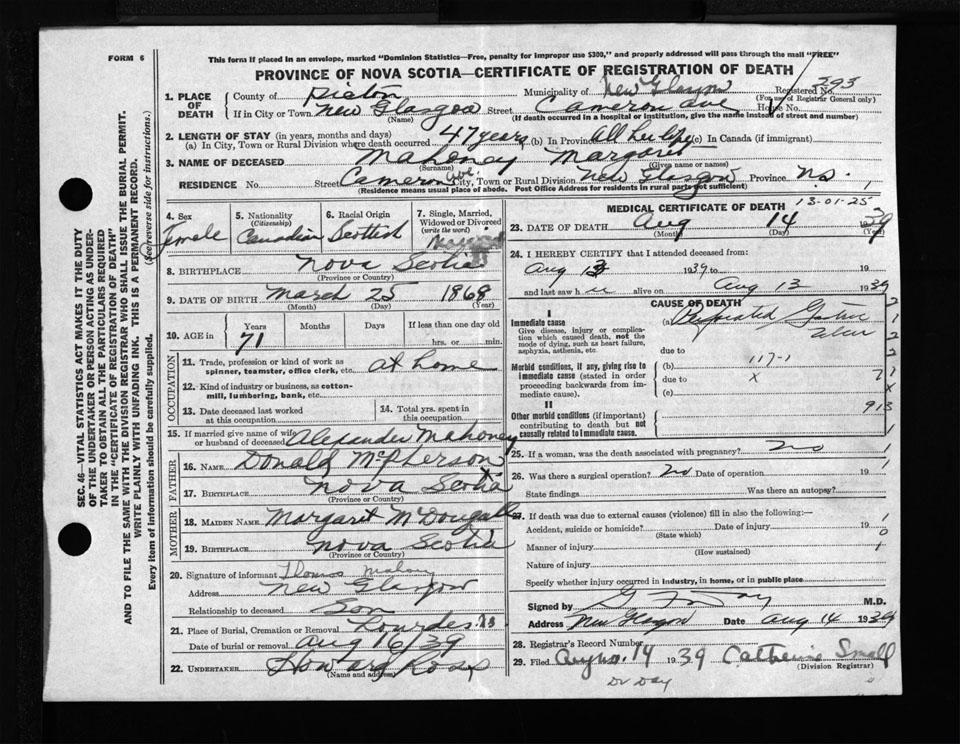 FORM 6
This form if placed in an envelope, marked "Dominion Statistics—Free, penalty for improper use $300," and properly addressed will pass through the mail "FREE"
PROVINCE OF NOVA SCOTIA—CERTIFICATE OF REGISTRATION OF DEATH
SEC. 46—VITAL STATISTICS ACT MAKES IT THE DUTY
OF THE UNDERTAKER OR PERSON ACTING AS UNDER-
TAKER TO OBTAIN ALL THE PARTICULARS REQUIRED
IN THE "CERTIFICATE OF REGISTRATION OF DEATH"
AND TO FILE THE SAME WITH THE DIVISION REGISTRAR WHO SHALL ISSUE THE BURIAL PERMIT.
WRITE PLAINLY WITH UNFADING INK. THIS IS A PERMANENT RECORD.
Every item of information should be carefully supplied. (See reverse side for instructions.)
1. PLACE OF DEATH
County of Pictou Municipality of New Glasgow Registered No. 293
(For use of Registrar General only)
If in City or Town New Glasgow Street Cameron ave House No.
(Name) (If death occurred in a hospital or institution, give the name instead of street and number)
2. LENGTH OF STAY (in years, months and days)
(a) In City, Town or Rural Division where death occurred 47 years (b) In Province All her life (c) In Canada (if immigrant)
3. NAME OF DECEASED Mahoney Margaret
(Surname) (Given name or names)
RESIDENCE No. Street Cameron Ave. City, Town or Rural Division New Glasgow Province N.S. 1
(Residence means usual place of abode. Post Office Address for residents in rural parts not sufficient)
4. Sex
female
5. Nationality
(Citizenship)
Canadian
6. Racial Origin
Scottish
7. Single, Married,
Widowed or Divorced
(write the word)
8. BIRTHPLACE Nova Scotia
(Province or Country)
9. DATE OF BIRTH March 25 1868
(Month) (Day) (Year)
10. AGE in Years Months Days If less than one day old
71 hrs. or min.
OCCUPATION
11. Trade, profession or kind of work as
spinner, teamster, office clerk, etc. at home
12. Kind of industry or business, as cotton-
mill, lumbering, bank, etc.
13. Date deceased last worked
at this occupation
14. Total yrs. spent in
this occupation
15. If married give name of wife
or husband of deceased Alexander Mahoney
FATHER
16. NAME Donald McPherson
17. BIRTHPLACE Nova Scotia
(Province or Country)
MOTHER
18. MAIDEN NAME Margaret McDougall
19. BIRTHPLACE Nova Scotia
(Province or Country)
20. Signature of informant Thomas Mahoney
Address New Glasgow
Relationship to deceased Son
21. Place of Burial, Cremation or Removal Lourdes N.S
Date of burial or removal Aug 16/39
22. UNDERTAKER Howard Ross
(Name and address)
13-01-25
MEDICAL CERTIFICATE OF DEATH
23. DATE OF DEATH Aug 14 1939
(Month) (Day) (Year)
24. I HEREBY CERTIFY that I attended deceased from:
Aug 13 1939 to 19
and last saw h er alive on Aug 13 1939
CAUSE OF DEATH
I
Immediate cause
Give disease, injury or complica-
tion which caused death, not the
mode of dying, such as heart failure,
asphyxia, asthenia, etc.
(a) Perforated Gastric
ulcer
due to
Morbid conditions, if any, giving rise to
immediate cause (stated in order
proceeding backwards from im-
mediate cause).
(b) 117-1
due to x
(c)
II
Other morbid conditions (if important)
contributing to death but not
causally related to immediate cause.
913
25. If a woman, was the death associated with pregnancy? No 1
26. Was there a surgical operation? No Date of operation 19 1
State findings Was there an autopsy?
27. If death was due to external causes (violence) fill in also the following:—
Accident, suicide or homicide? Date of injury 19
(State which)
Manner of injury
(How sustained)
Nature of injury
Specify whether injury occurred in industry, in home, or in public place
Signed by M.D.
Address New Glasgow Date Aug 14 1939
28. Registrar's Record Number
29. Filed August 14 1939 Catherine Small
(Division Registrar)
Dr Day